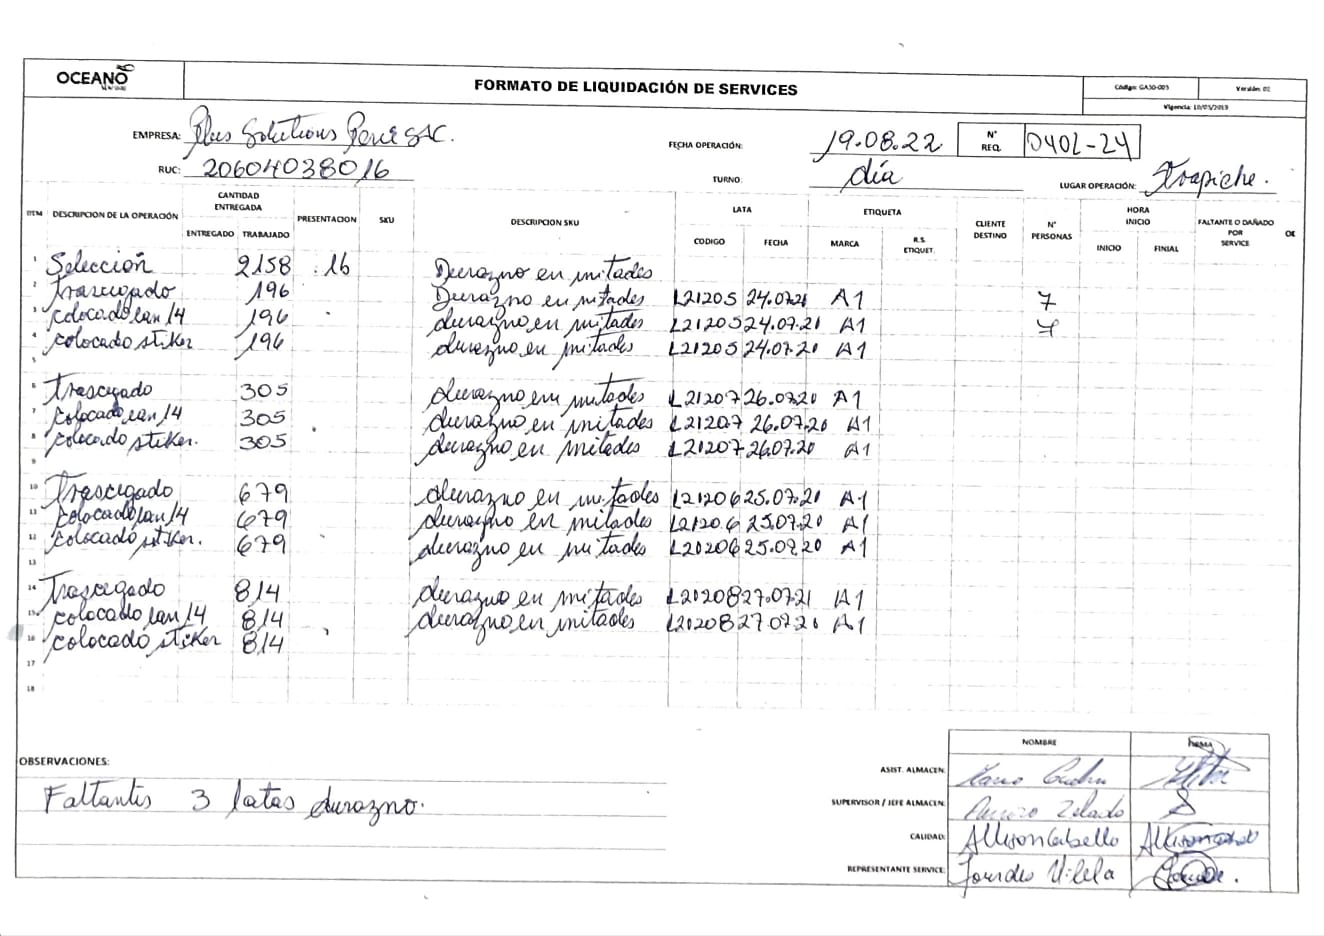 OCEANO
FORMATO DE LIQUIDACIÓN DE SERVICES
Código: GA30-005 Versión: 02
Vigencia: 10/05/2019
EMPRESA: Plus Solutions Perú SAC.
FECHA OPERACIÓN: 19.08.22 N° REQ. 0402-24
RUC: 20604038016
TURNO: día LUGAR OPERACIÓN: Trapiche.
ITEM DESCRIPCION DE LA OPERACIÓN CANTIDAD ENTREGADA PRESENTACION SKU DESCRIPCION SKU LATA ETIQUETA CLIENTE DESTINO N° PERSONAS HORA INICIO FALTANTE O DAÑADO POR SERVICE
ENTREGADO TRABAJADO CODIGO FECHA MARCA R.S. ETIQUET. INICIO FINIAL
1 Selección 2158 16 Durazno en mitades
2 Trascigado 196 Durazno en mitades L21205 24.07.21 A1 7
3 colocado lan/4 196 durazno en mitades L21205 24.07.21 A1 7
4 colocado stiker 196 durazno en mitades L21205 24.07.20 A1
5
6 Trascegado 305 durazno en mitades L21207 26.07.20 A1
7 colocado lan/4 305 durazno en mitades L21207 26.07.20 A1
8 colocado stiker. 305 durazno en mitades L21207 26.07.20 A1
9
10 Trascigado 679 durazno en mitades L21206 25.07.21 A1
11 colocado lan/4 679 durazno en mitades L21206 25.07.20 A1
12 colocado stiker. 679 durazno en mitades L20206 25.07.20 A1
13
14 Trascegado 814 durazno en mitades L21208 27.07.21 A1
15 colocado lan/4 814 durazno en mitades L21208 27.07.20 A1
16 colocado stiker 814
17
18
NOMBRE FIRMA
OBSERVACIONES:
Faltantis 3 latas durazno.
ASIST. ALMACEN:
SUPERVISOR / JEFE ALMACEN:
CALIDAD: Allison Cabello
REPRESENTANTE SERVICE: Lourdes Vilela